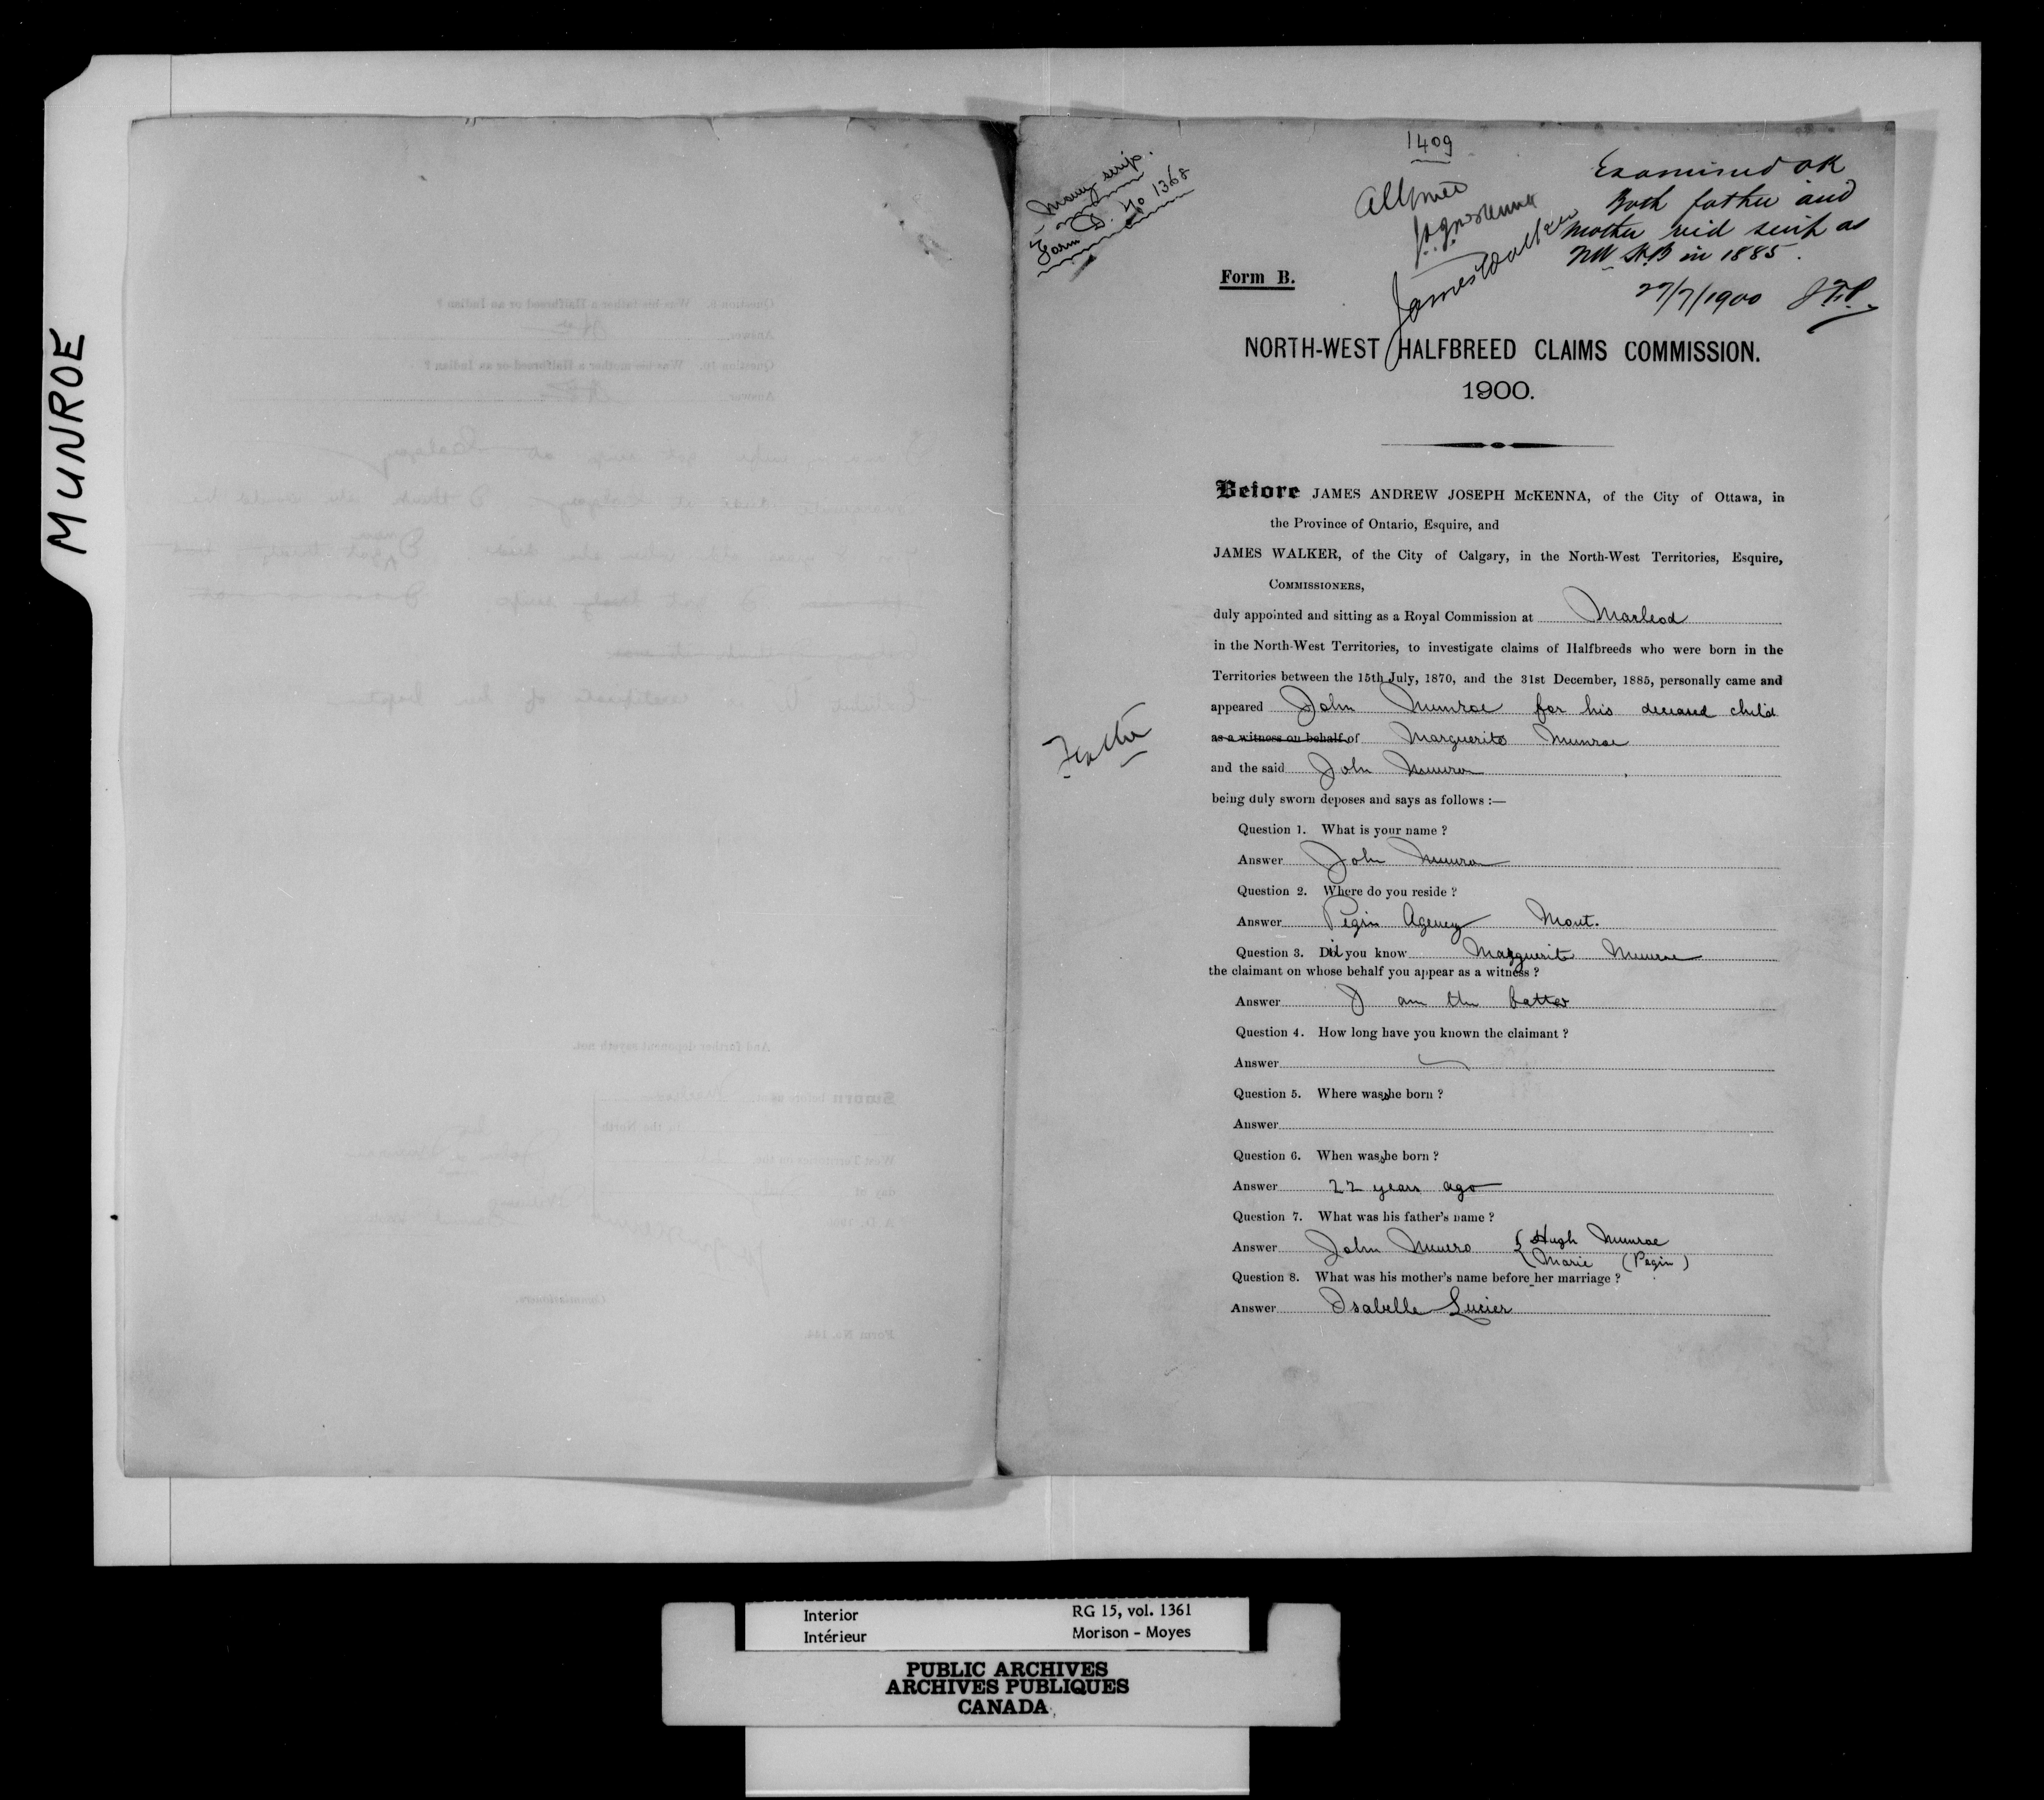 MUNROE
1409
Money scrip.
Form D. No 1368
Allowed
J.A.J. McKenna
James Walker
Examined OK
Both father and
mother rec'd scrip as
NW H.B in 1885.
27/7/1900 J.F.P.
Form B.
NORTH-WEST HALFBREED CLAIMS COMMISSION.
1900.
Before JAMES ANDREW JOSEPH McKENNA, of the City of Ottawa, in
the Province of Ontario, Esquire, and
JAMES WALKER, of the City of Calgary, in the North-West Territories, Esquire,
COMMISSIONERS,
duly appointed and sitting as a Royal Commission at Macleod
in the North-West Territories, to investigate claims of Halfbreeds who were born in the
Territories between the 15th July, 1870, and the 31st December, 1885, personally came and
appeared John Munroe for his deceased child
as a witness on behalf of Marguerite Munroe
Father
and the said John Munroe
being duly sworn deposes and says as follows :—
Question 1. What is your name ?
Answer John Munroe
Question 2. Where do you reside ?
Answer Pegin Agency Mont.
Question 3. Did you know Marguerite Munroe
the claimant on whose behalf you appear as a witness ?
Answer I am the father
Question 4. How long have you known the claimant ?
Answer
Question 5. Where was she born ?
Answer
Question 6. When was she born ?
Answer 22 years ago
Question 7. What was his father's name ?
Answer John Munro { Hugh Munroe
Marie (Pegin)
Question 8. What was his mother's name before her marriage ?
Answer Isabelle Lucier
Interior RG 15, vol. 1361
Intérieur Morison - Moyes
PUBLIC ARCHIVES
ARCHIVES PUBLIQUES
CANADA